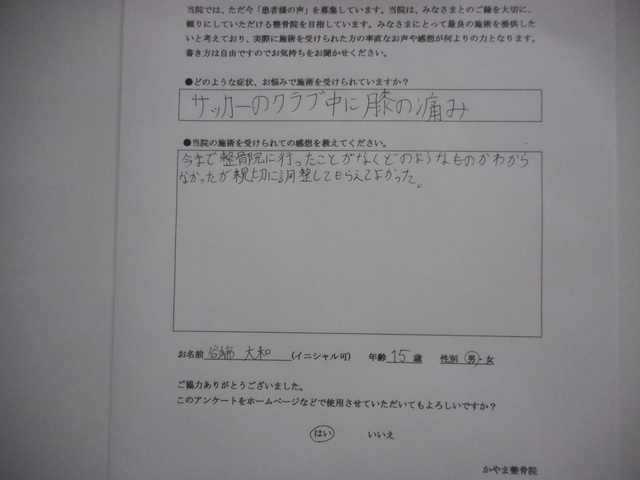 当院では、ただ今「患者様の声」を募集しています。当院は、みなさまとのご縁を大切に、
頼りにしていただける整骨院を目指しています。みなさまにとって最良の施術を提供した
いと考えており、実際に施術を受けられた方の率直なお声や感想が何よりの力となります。
書き方は自由ですのでお気持ちをお聞かせください。
●どのような症状、お悩みで施術を受けられていますか？
サッカーのクラブ中に膝の痛み
●当院の施術を受けられての感想を教えてください。
今まで整骨院に行ったことがなくどのようなものかわから
なかったが親切に調整してもらえてよかった。
お名前 谷端 大和 (イニシャル可) 年齢 15 歳 性別 男・女
ご協力ありがとうございました。
このアンケートをホームページなどで使用させていただいてもよろしいですか？
はい いいえ
かやま整骨院